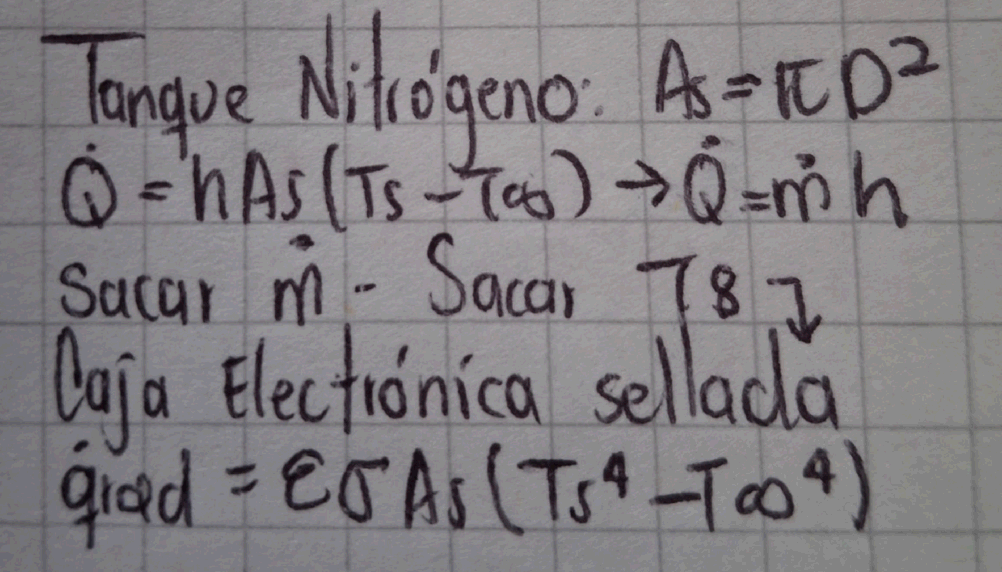 Tanque Nitrógeno: As = π D²
Q̇ = h As (Ts - T∞) → Q̇ = ṁ h
Sacar ṁ - Sacar T8 ↴
Caja Electrónica sellada
q̇rad = εσ As (Ts⁴ - T∞⁴)